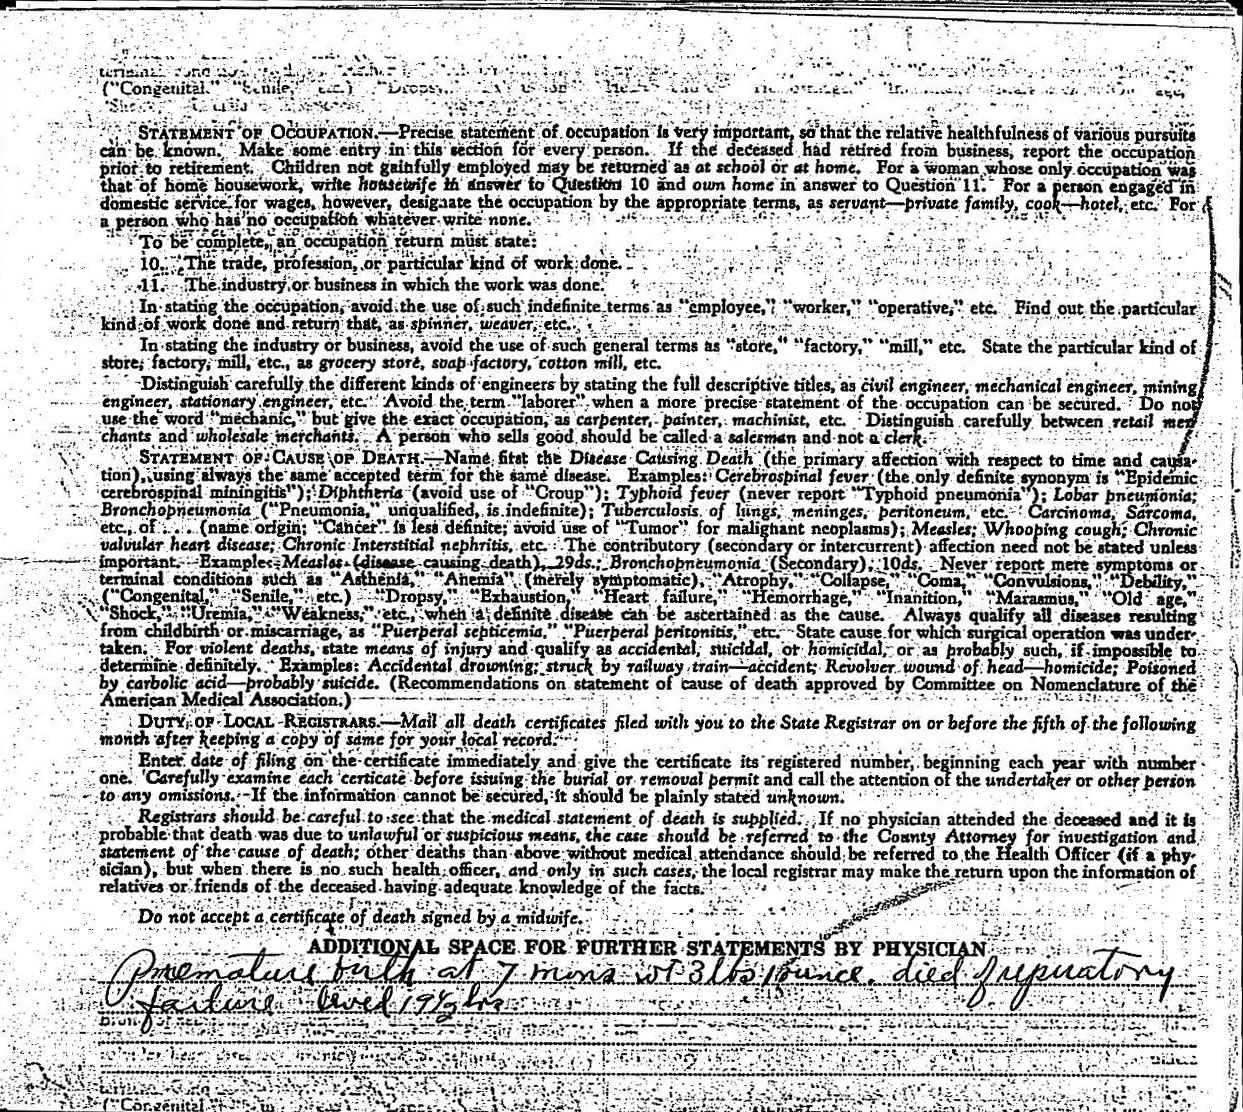 ("Congenital," "Senile, etc.) "Dropsy
STATEMENT OF OCCUPATION.—Precise statement of occupation is very important, so that the relative healthfulness of various pursuits
can be known. Make some entry in this section for every person. If the deceased had retired from business, report the occupation
prior to retirement. Children not gainfully employed may be returned as at school or at home. For a woman whose only occupation was
that of home housework, write housewife in answer to Question 10 and own home in answer to Question 11. For a person engaged in
domestic service for wages, however, designate the occupation by the appropriate terms, as servant—private family, cook—hotel, etc. For
a person who has no occupation whatever write none.
To be complete, an occupation return must state:
10. The trade, profession, or particular kind of work done.
11. The industry or business in which the work was done.
In stating the occupation, avoid the use of such indefinite terms as "employee," "worker," "operative," etc. Find out the particular
kind of work done and return that, as spinner, weaver, etc.
In stating the industry or business, avoid the use of such general terms as "store," "factory," "mill," etc. State the particular kind of
store, factory, mill, etc., as grocery store, soap factory, cotton mill, etc.
Distinguish carefully the different kinds of engineers by stating the full descriptive titles, as civil engineer, mechanical engineer, mining
engineer, stationary engineer, etc. Avoid the term "laborer" when a more precise statement of the occupation can be secured. Do not
use the word "mechanic," but give the exact occupation, as carpenter, painter, machinist, etc. Distinguish carefully between retail mer-
chants and wholesale merchants. A person who sells good should be called a salesman and not a clerk.
STATEMENT OF CAUSE OF DEATH.—Name first the Disease Causing Death (the primary affection with respect to time and causa-
tion), using always the same accepted term for the same disease. Examples: Cerebrospinal fever (the only definite synonym is "Epidemic
cerebrospinal miningitis"); Diphtheria (avoid use of "Croup"); Typhoid fever (never report "Typhoid pneumonia"); Lobar pneumonia;
Bronchopneumonia ("Pneumonia," unqualified, is indefinite); Tuberculosis of lungs, meninges, peritoneum, etc. Carcinoma, Sarcoma,
etc., of .... (name origin; "Cancer" is less definite; avoid use of "Tumor" for malignant neoplasms); Measles; Whooping cough; Chronic
valvular heart disease; Chronic Interstitial nephritis, etc. The contributory (secondary or intercurrent) affection need not be stated unless
important. Example: Measles (disease causing death), 29ds.; Bronchopneumonia (Secondary), 10ds. Never report mere symptoms or
terminal conditions such as "Asthenia," "Anemia" (merely symptomatic), "Atrophy," "Collapse," "Coma," "Convulsions," "Debility,"
("Congenital," "Senile," etc.) "Dropsy," "Exhaustion," "Heart failure," "Hemorrhage," "Inanition," "Marasmus," "Old age,"
"Shock," "Uremia," "Weakness," etc., when a definite disease can be ascertained as the cause. Always qualify all diseases resulting
from childbirth or miscarriage, as "Puerperal septicemia," "Puerperal peritonitis," etc. State cause for which surgical operation was under-
taken. For violent deaths, state means of injury and qualify as accidental, suicidal, or homicidal, or as probably such, if impossible to
determine definitely. Examples: Accidental drowning; struck by railway train—accident; Revolver wound of head—homicide; Poisoned
by carbolic acid—probably suicide. (Recommendations on statement of cause of death approved by Committee on Nomenclature of the
American Medical Association.)
DUTY OF LOCAL REGISTRARS.—Mail all death certificates filed with you to the State Registrar on or before the fifth of the following
month after keeping a copy of same for your local record.
Enter date of filing on the certificate immediately and give the certificate its registered number, beginning each year with number
one. Carefully examine each certicate before issuing the burial or removal permit and call the attention of the undertaker or other person
to any omissions. If the information cannot be secured, it should be plainly stated unknown.
Registrars should be careful to see that the medical statement of death is supplied. If no physician attended the deceased and it is
probable that death was due to unlawful or suspicious means, the case should be referred to the County Attorney for investigation and
statement of the cause of death; other deaths than above without medical attendance should be referred to the Health Officer (if a phy-
sician), but when there is no such health officer, and only in such cases, the local registrar may make the return upon the information of
relatives or friends of the deceased having adequate knowledge of the facts.
Do not accept a certificate of death signed by a midwife.
ADDITIONAL SPACE FOR FURTHER STATEMENTS BY PHYSICIAN
Premature birth at 7 mons wt 3 lbs 1 ounce. died of repiratory
failure lived 19½ hrs
("Congenital